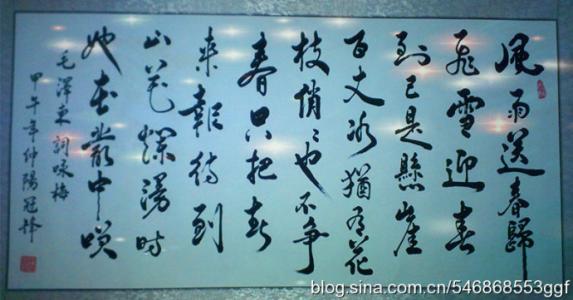 風雨送春歸
飛雪迎春
到已是懸崖
百丈冰猶有花
枝俏〻也不争
春只把春
來報待到
山花爛漫時
她在叢中咲
毛澤东詞咏梅
甲午年仲陽冠
blog.sina.com.cn/546868553ggf